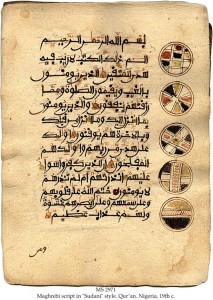 بسم الله الرحمن الرحيم
الم ذلك الكتب لا ريب فيه
هدى للمتقين الذين يومنون
بالغيب ويقيمون الصلوة ومما
رزقنهم ينفقون والذين يومنون
بما انزل اليك وما انزل من قبلك
وبالاخرة هم يوقنون اوليك
على هدى من ربهم واوليك هم
المفلحون ان الذين كفروا سوا
عليهم انذرتهم ام لم تنذرهم
لا يومنون ختم الله على قلوبهم
وعلى سمعهم وعلى ابصرهم غشوة
ولهم عذاب عظيم
ومن
MS 2971
Maghribi script in "Sudani" style. Qur'an. Nigeria, 19th c.